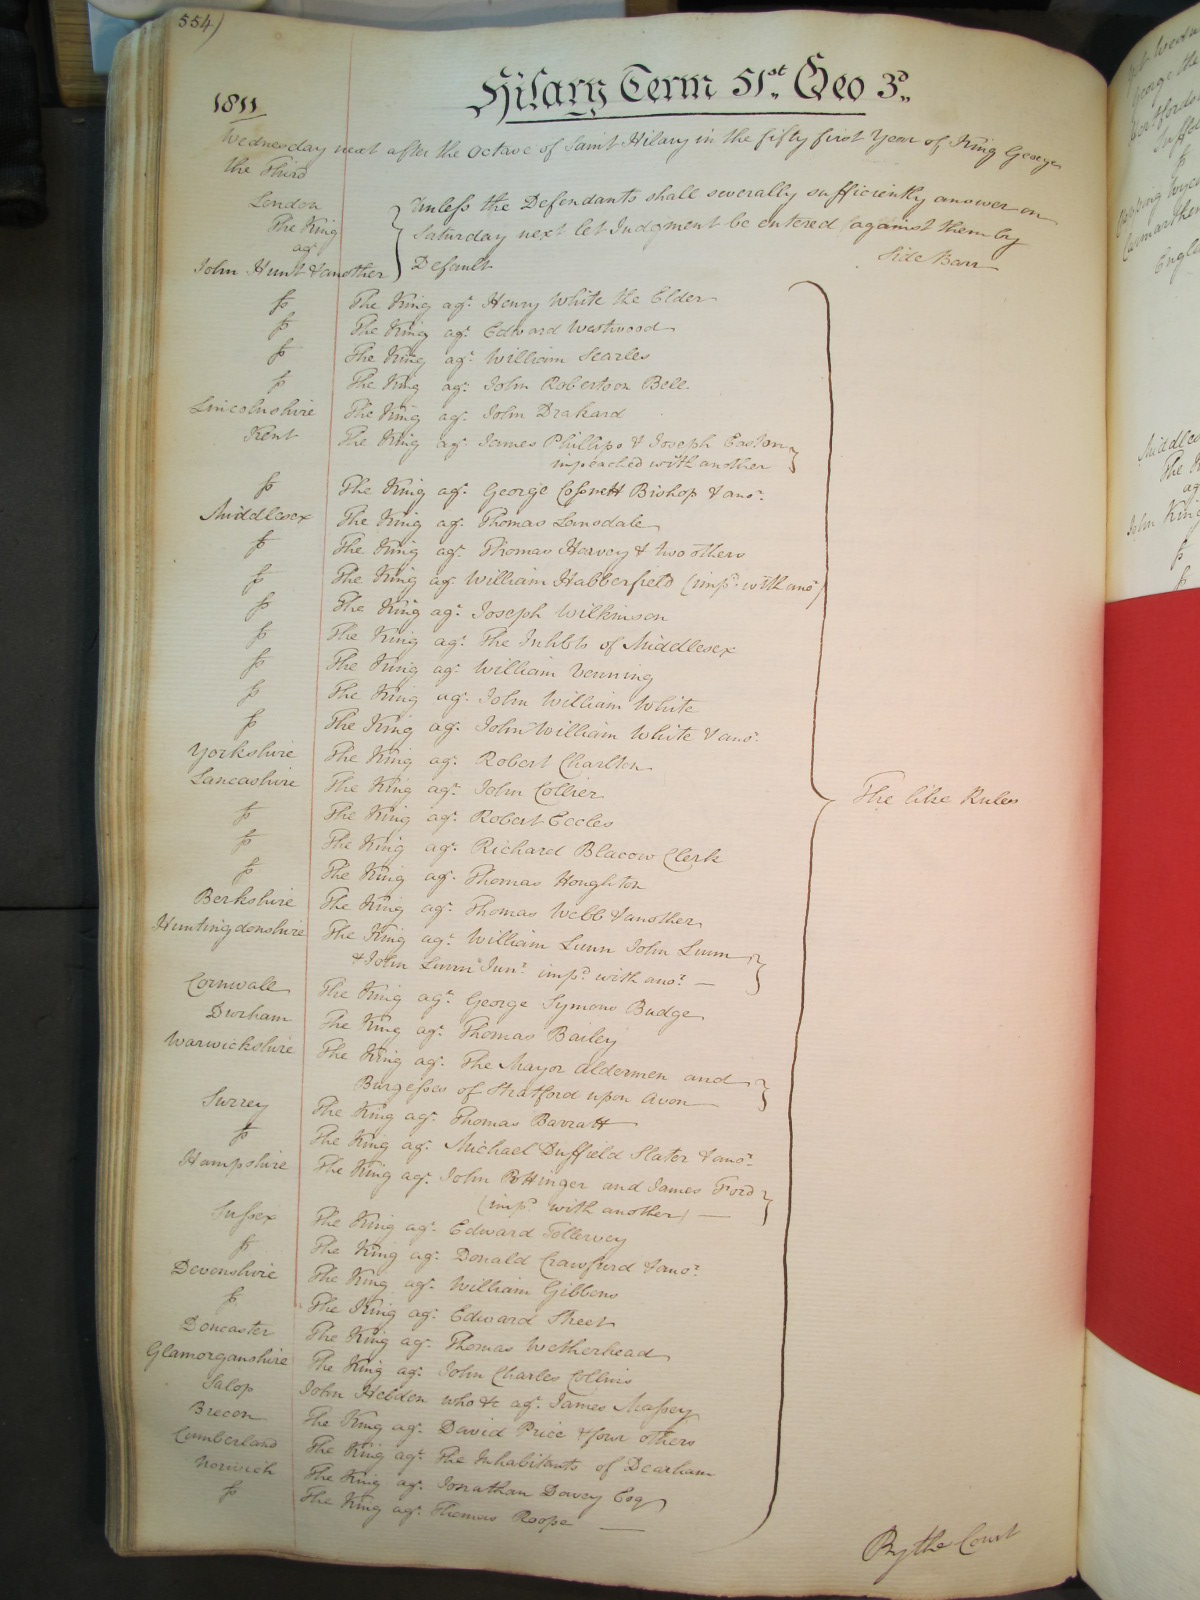 554)
Hilary Term 51st. Geo 3d.
1811
Wednesday next after the Octave of Saint Hilary in the fifty first Year of King George
the Third
London
The King
agt.
John Hunt & another
Unless the Defendants shall severally sufficiently answer on
Saturday next let Judgment be entered against them by
Default
Side Barr
fs The King agt. Henry White the Elder
fs The King agt. Edward Westwood
fs The King agt. William Searles
fs The King agt. John Robertson Bell
Lincolnshire The King agt. John Drakard
Kent The King agt. James Phillips & Joseph Easton
impeached with another
fs The King agt. George Bishop & anor.
Middlesex The King agt. Thomas Lansdale
fs The King agt. Thomas Harvey & two others
fs The King agt. William Habberfield (impd. with anor)
fs The King agt. Joseph Wilkinson
fs The King agt. The Inhbts of Middlesex
fs The King agt. William Venning
fs The King agt. John William White
fs The King agt. John William White & anor.
Yorkshire The King agt. Robert Charlton
Lancashire The King agt. John Collier
fs The King agt. Robert Eccles
fs The King agt. Richard Blacow Clerk
fs The King agt. Thomas Houghton
Berkshire The King agt. Thomas Webb & another
Huntingdonshire The King agt. William Lunn John Lunn
& John Lunn Junr. impd. with anor.
Cornwall The King agt. George Symons Budge
Durham The King agt. Thomas Bailey
Warwickshire The King agt. The Mayor Aldermen and
Burgesses of Stratford upon Avon
Surrey The King agt. Thomas Barratt
fs The King agt. Michael Duffield Slater & anor.
Hampshire The King agt. John Pottinger and James Ford
(impd. with another)
Sussex The King agt. Edward Tollervey
fs The King agt. Donald Crawfurd & anor.
Devonshire The King agt. William Gibbons
fs The King agt. Edward Street
Doncaster The King agt. Thomas Wetherhead
Glamorganshire The King agt. John Charles Collins
Salop John Hebden who &c agt. James Massey
Brecon The King agt. David Price & four others
Cumberland The King agt. The Inhabitants of Dearham
Norwich The King agt. Jonathan Davey Esq
fs The King agt. Thomas Roope
The like Rules
By the Court
Middlesex
The K
ag
John King